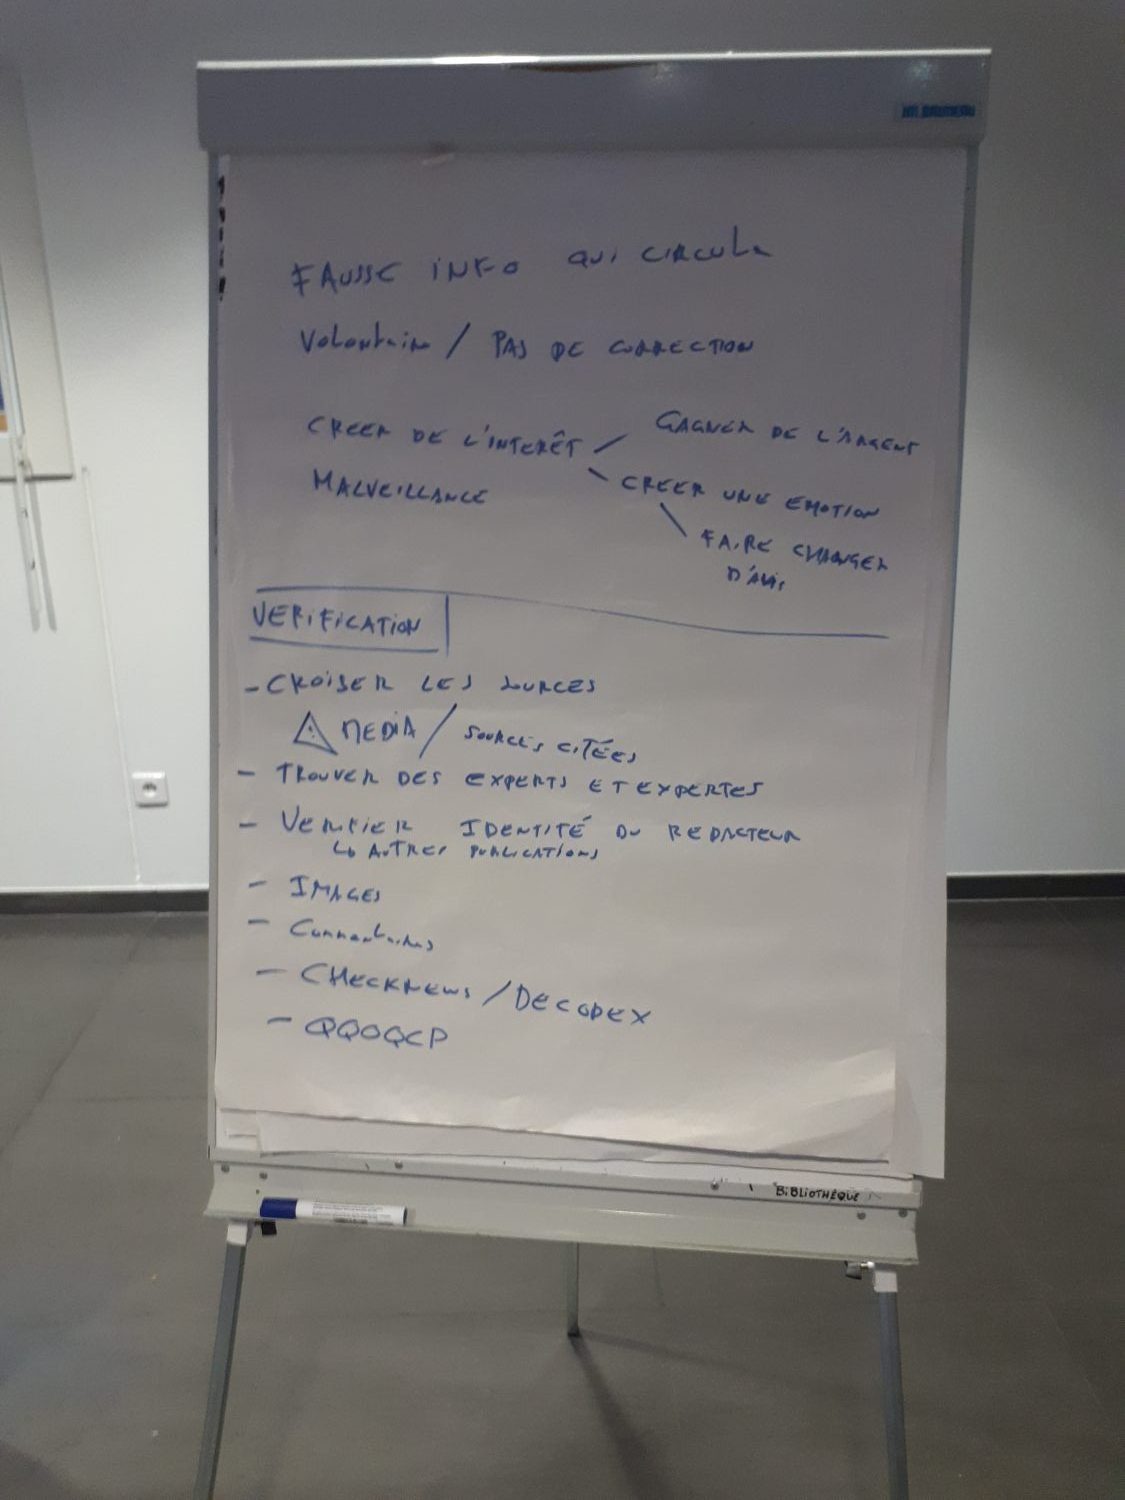 FAUSSE INFO QUI CIRCULE
Volontaire / PAS DE CORRECTION
CREER DE L'INTERÊT
GAGNER DE L'ARGENT
CREER UNE EMOTION
FAIRE CHANGER
D'AVIS
MALVEILLANCE
VERIFICATION
- CROISER LES SOURCES
⚠ MEDIA / SOURCES CITÉES
- TROUVER DES EXPERTS ET EXPERTES
- VERIFIER IDENTITÉ DU REDACTEUR
↳ AUTRES PUBLICATIONS
- IMAGES
- Commentaires
- CHECKNEWS / DECODEX
- QQOQCP
BIBLIOTHÈQUE